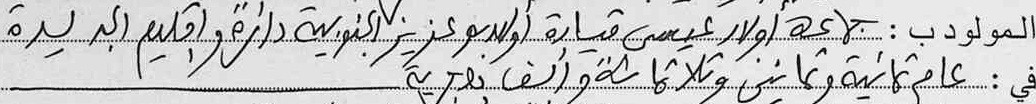 المولود ب: جماعة أولاد عيسى قيادة أولاد بوعزيز الجنوبية دائرة وإقليم الجديدة
في: عام ثمانية وثمانين وثلاثمائة وألف هجرية